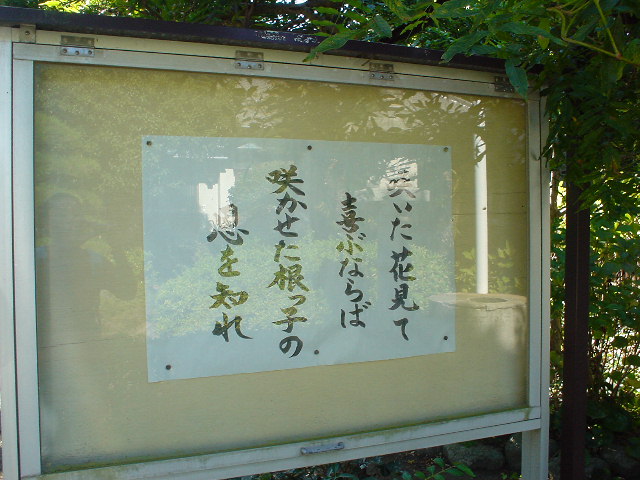 咲いた花見て
喜ぶならば
咲かせた根っ子の
恩を知れ